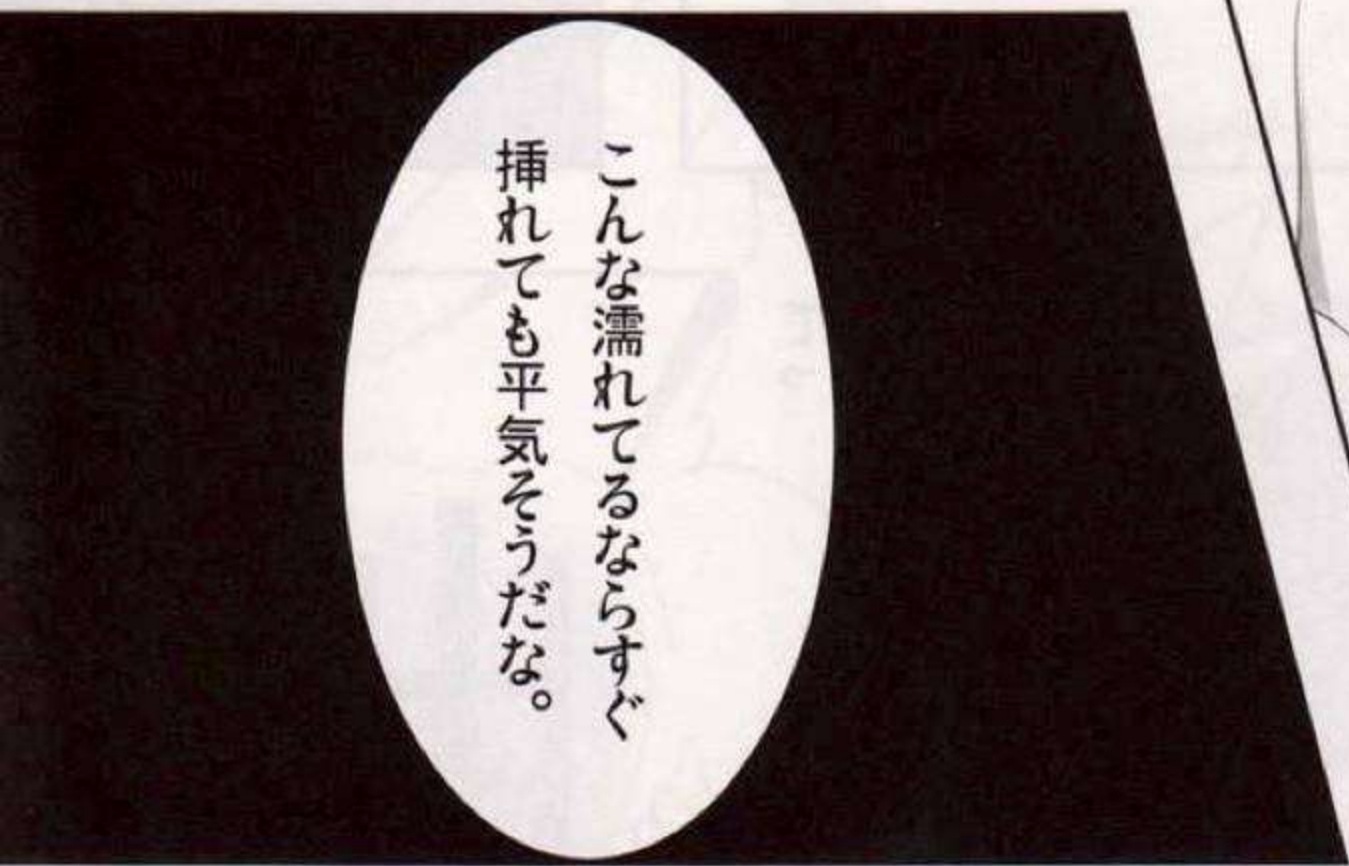 こんな濡れてるならすぐ
挿れても平気そうだな。